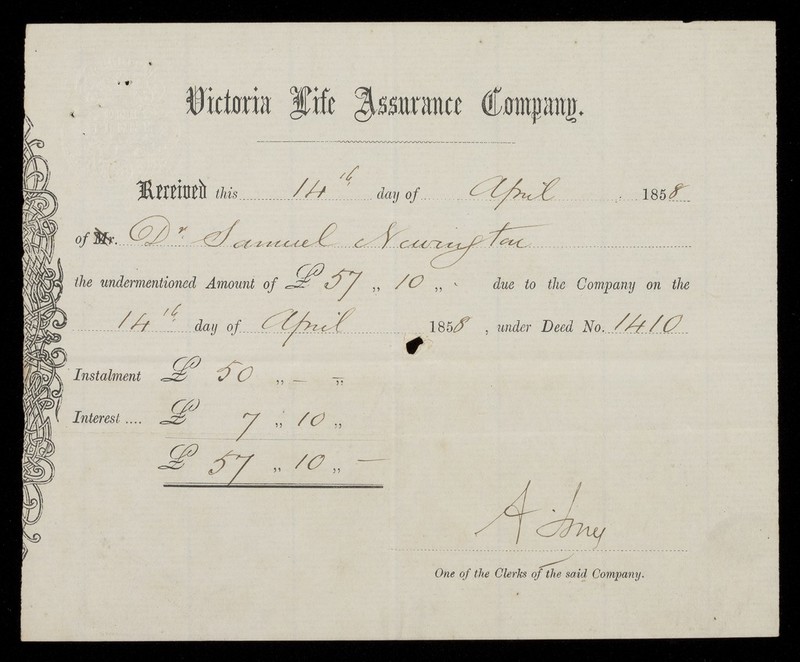 Victoria Life Assurance Company.
Received this 14th day of April 1858
of Mr. Dr. Samuel Newington
the undermentioned Amount of £ 57 „ 10 „ - due to the Company on the
14th day of April 1858 , under Deed No. 1410
Instalment £ 50 „ - „
Interest .... £ 7 „ 10 „
£ 57 „ 10 „ —
A
One of the Clerks of the said Company.